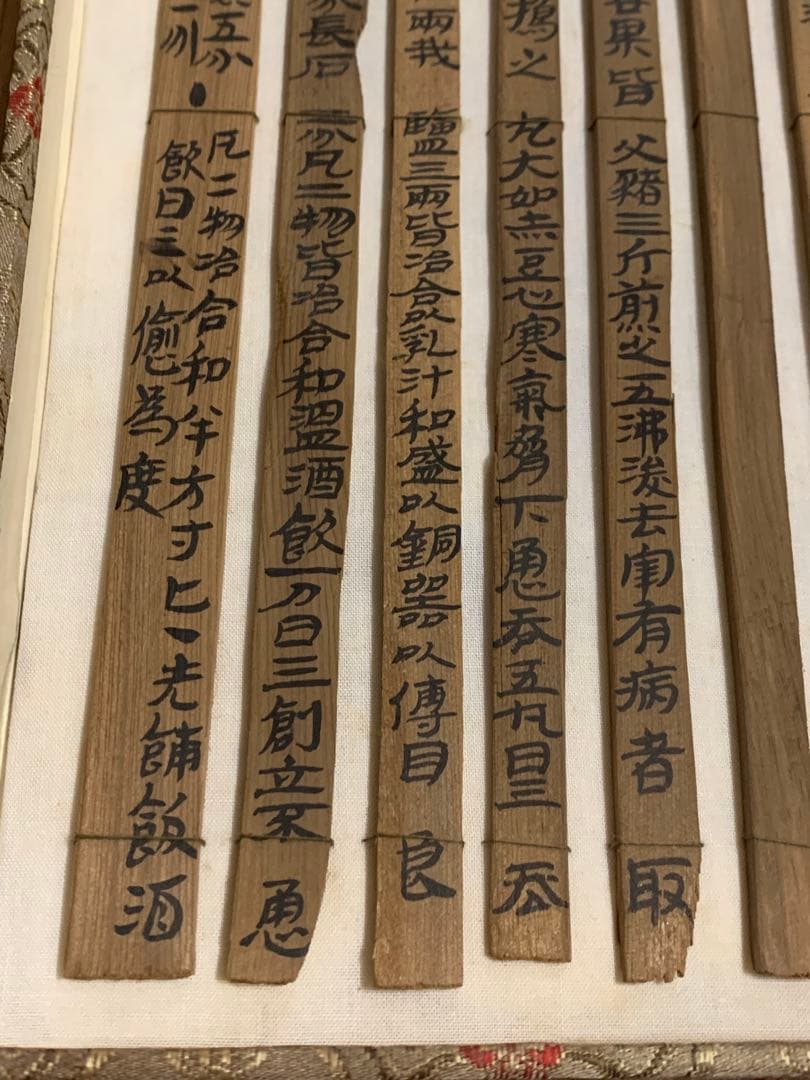 果皆父豬三斤煎之五沸浚去宰有病者取
搗之丸大如赤豆心寒氣脅下恿吞五丸日三吞
兩哉鹽三兩皆冶合以乳汁和盛以銅器以傅目良
長石二分凡二物皆冶合和溫酒飲一刀日三創立不恿
五分
一分●凡二物冶合和半方寸匕一先餔飯酒
飲日三以愈為度